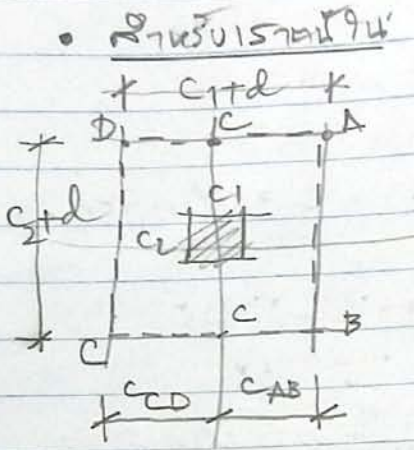 • สำหรับเสาต้นใน
C₁+d
D C A
C₁
C₂+d
C₂
C
B
C
C_CD C_AB